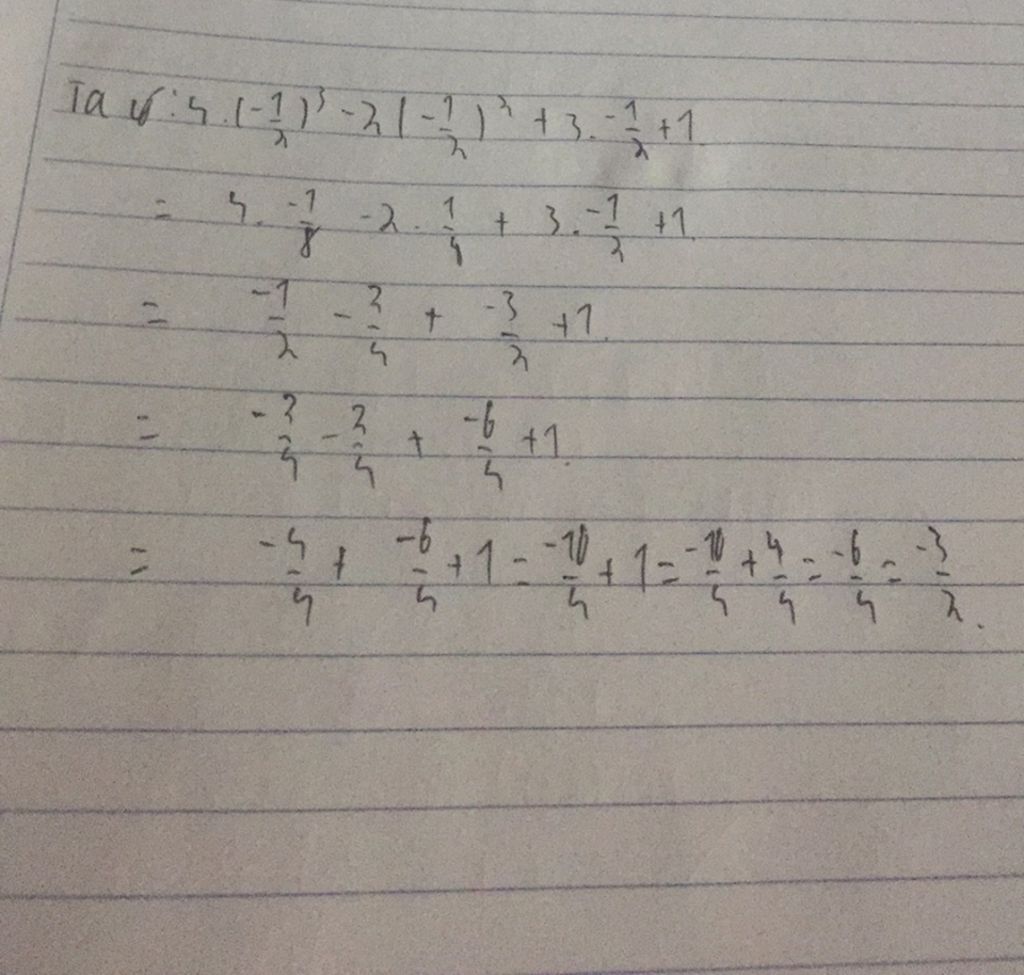 Ta có: 4.(-1/2)³ - 2(-1/2)² + 3.-1/2 + 1.
= 4.-1/8 - 2.1/4 + 3.-1/2 + 1.
= -1/2 - 2/4 + -3/2 + 1.
= -2/4 - 2/4 + -6/4 + 1.
= -4/4 + -6/4 + 1 = -10/4 + 1 = -10/4 + 4/4 = -6/4 = -3/2.